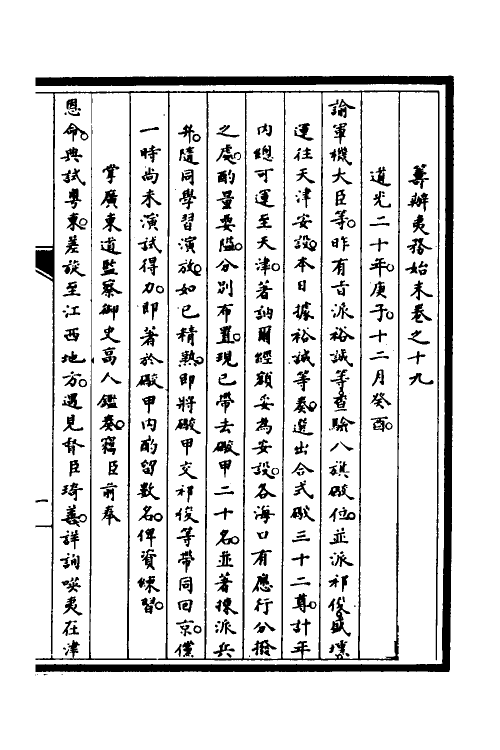 籌辦夷務始末卷之十九
道光二十年。庚子。十二月癸酉。
諭軍機大臣等。昨有旨派裕誠等。查驗八旗礮位。並派祁俊。盛壎
運往天津安設。本日據裕誠等奏。選出合式礮三十二尊。計年
內總可運至天津。著訥爾經額妥為安設。各海口有應行分撥
之處。酌量要隘。分別布置。現已帶去礮甲二十名。並著揀派兵
弁。隨同學習演放。如已精熟。即將礮甲交祁俊等帶同回京。儻
一時尚未演試得力。即著於礮甲內酌留數名。俾資練習。
掌廣東道監察御史高人鑑奏。竊臣前奉
恩命。典試粵東。差旋至江西地方。遇見督臣琦善。詳詢𠸄夷在津
一